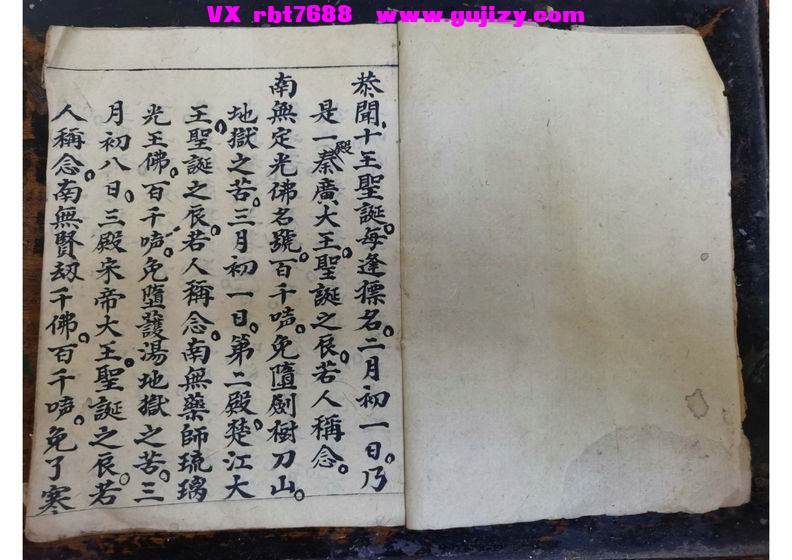 VX rbt7688 www.gujizy.com
恭聞十王聖誕。每逢標名。二月初一日。乃
是一殿秦廣大王聖誕之辰。若人稱念。
南無定光佛名號。百千声。免墮劍樹刀山
地獄之苦。三月初一日。第二殿楚江大
王聖誕之辰。若人稱念。南無藥師琉璃
光王佛。百千声。免墮鑊湯地獄之苦。三
月初八日。三殿宋帝大王聖誕之辰。若
人稱念。南無賢劫千佛。百千声。免了寒